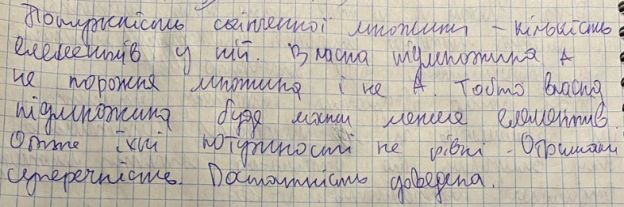 Потужність скінченної множини - кількість
елементів у ній. Власна підмножина А
не порожня множина і не А. Тобто власна
підмножина буде мати менше елементів.
Отже їхні потужності не рівні. Отримали
суперечність. Достатність доведена.